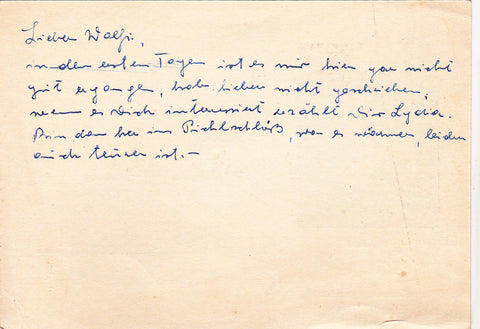 Lieber Wolfi,
in den ersten Tagen ist es mir hier gar nicht
gut ergangen, hab lieber nicht geschrieben,
wenn es Dich interessiert erzählt Dir Lydia.
Bin dann her ins Pichlschloß, wo es wärmer, leider
auch teurer ist.–